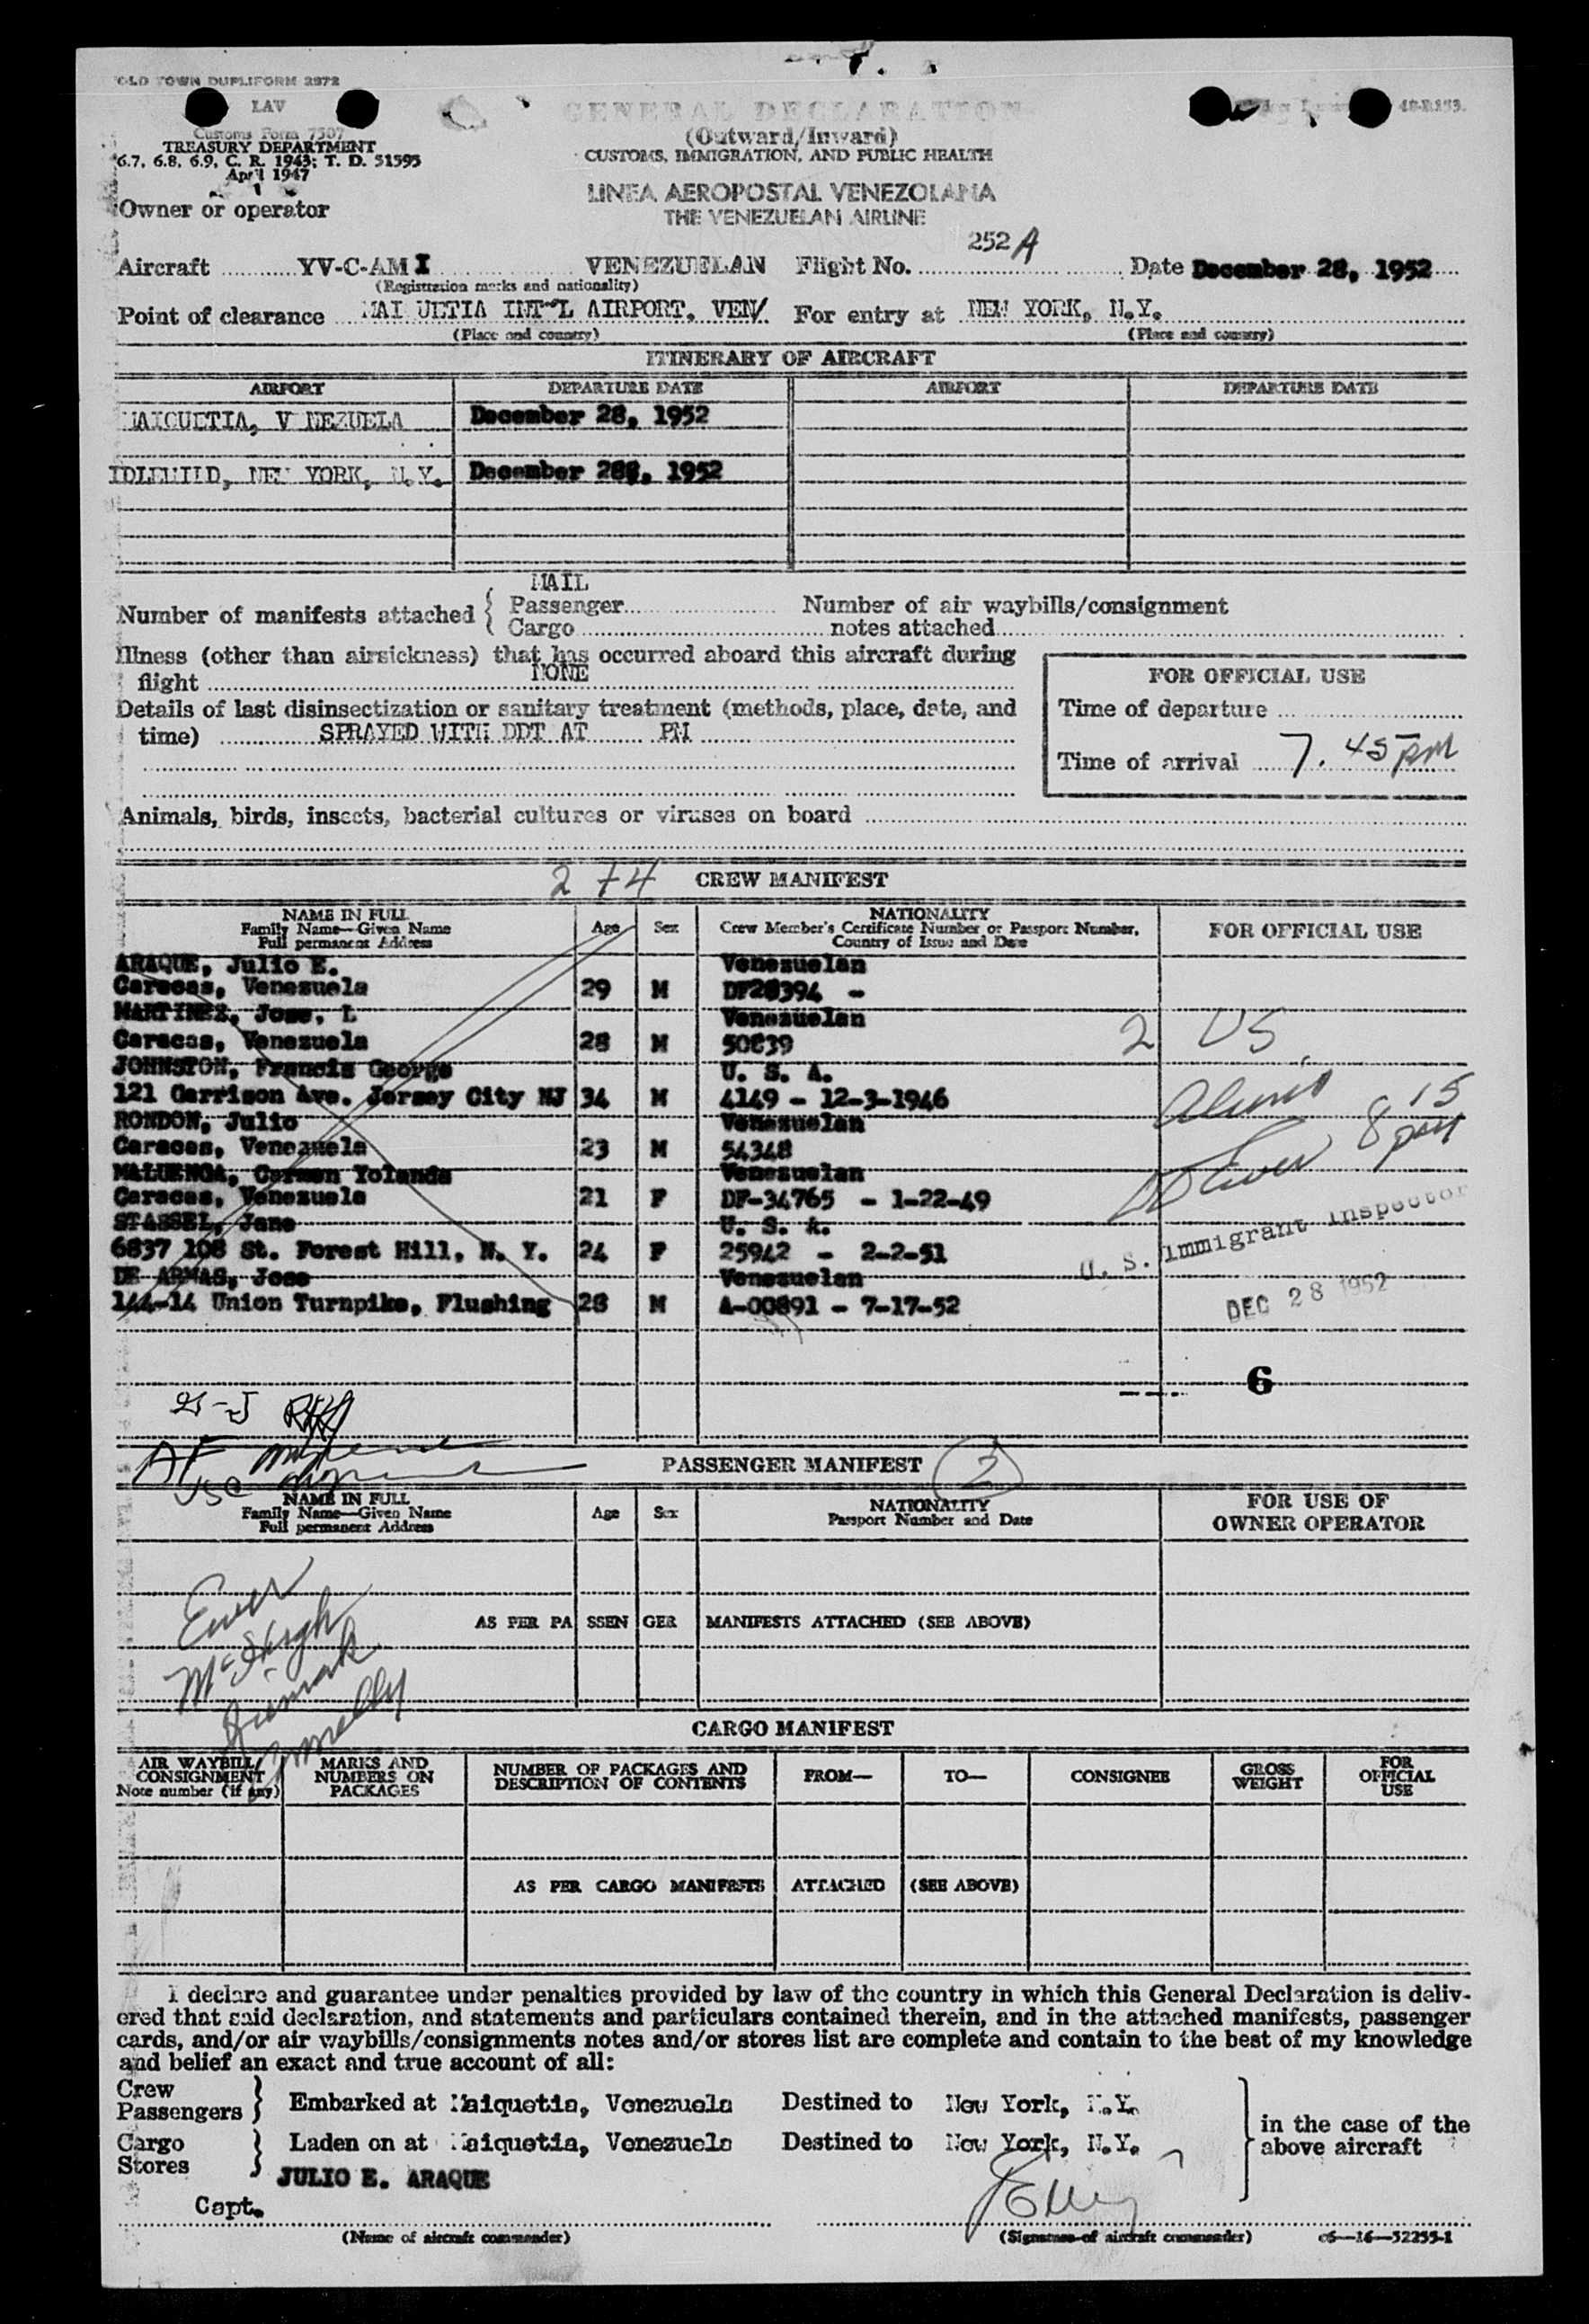 OLD TOWN DUPLIFORM 2872
LAV
Customs Form 7507
TREASURY DEPARTMENT
6.7, 6.8, 6.9, C. R. 1943; T. D. 51595
April 1947
GENERAL DECLARATION
(Outward/Inward)
CUSTOMS, IMMIGRATION, AND PUBLIC HEALTH
LINEA AEROPOSTAL VENEZOLANA
THE VENEZUELAN AIRLINE
Owner or operator
Aircraft YV-C-AMI VENEZUELAN Flight No. 252A Date December 28, 1952
(Registration marks and nationality)
Point of clearance MAI UETIA INT'L AIRPORT, VEN/ For entry at NEW YORK, N.Y.
(Place and country) (Place and country)
ITINERARY OF AIRCRAFT
AIRPORT DEPARTURE DATE AIRPORT DEPARTURE DATE
MAIQUETIA, V NEZUELA December 28, 1952
IDLEWILD, NEW YORK, N.Y. December 288, 1952
MAIL
Number of manifests attached { Passenger Number of air waybills/consignment
Cargo notes attached
Illness (other than airsickness) that has occurred aboard this aircraft during
flight NONE
Details of last disinsectization or sanitary treatment (methods, place, date, and
time) SPRAYED WITH DDT AT PM
FOR OFFICIAL USE
Time of departure
Time of arrival 7.45 PM
Animals, birds, insects, bacterial cultures or viruses on board
2 + 4 CREW MANIFEST
NAME IN FULL
Family Name—Given Name
Full permanent Address
Age Sex
NATIONALITY
Crew Member's Certificate Number or Passport Number,
Country of Issue and Date
FOR OFFICIAL USE
ARAQUE, Julio E. Venezuelan
Caracas, Venezuela 29 M DF28394 -
MARTINEZ, Jose, L Venezuelan
Caracas, Venezuela 28 M 50839
JOHNSTON, Francis George U. S. A.
121 Garrison Ave. Jersey City NJ 34 M 4149 - 12-3-1946
RONDON, Julio Venezuelan
Caracas, Venezuela 23 M 54348
MALUENGA, Carmen Yolanda Venezuelan
Caracas, Venezuela 21 F DF-34765 - 1-22-49
STASSEL, Jane U. S. A.
6837 108 St. Forest Hill, N. Y. 24 F 25942 - 2-2-51
DE ARMAS, Jose Venezuelan
144-14 Union Turnpike, Flushing 28 M A-00891 - 7-17-52
2 US
8 15
pm
U. S. Immigrant Inspector
DEC 28 1952
6
PASSENGER MANIFEST 2
NAME IN FULL
Family Name—Given Name
Full permanent Address
Age Sex
NATIONALITY
Passport Number and Date
FOR USE OF
OWNER OPERATOR
AS PER PASSENGER MANIFESTS ATTACHED (SEE ABOVE)
CARGO MANIFEST
AIR WAYBILL/
CONSIGNMENT
Note number (if any)
MARKS AND
NUMBERS ON
PACKAGES
NUMBER OF PACKAGES AND
DESCRIPTION OF CONTENTS
FROM— TO— CONSIGNEE
GROSS
WEIGHT
FOR
OFFICIAL
USE
AS PER CARGO MANIFESTS ATTACHED (SEE ABOVE)
I declare and guarantee under penalties provided by law of the country in which this General Declaration is deliv-
ered that said declaration, and statements and particulars contained therein, and in the attached manifests, passenger
cards, and/or air waybills/consignments notes and/or stores list are complete and contain to the best of my knowledge
and belief an exact and true account of all:
Crew
Passengers } Embarked at Maiquetia, Venezuela Destined to New York, N.Y.
Cargo
Stores } Laden on at Maiquetia, Venezuela Destined to New York, N.Y.
in the case of the
above aircraft
JULIO E. ARAQUE
Capt.
(Name of aircraft commander) (Signature of aircraft commander) c6—16—52255-1